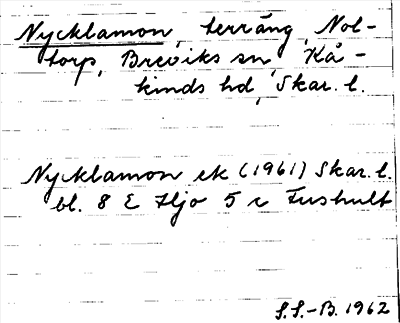 Nycklamon, terräng, Nol-
torp, Breviks sn, Kå-
kinds hd, Skar. l.
Nycklamon ek (1961) Skar. l.
bl. 8 E Hjo 5 c Fushult
S.S.-B. 1962